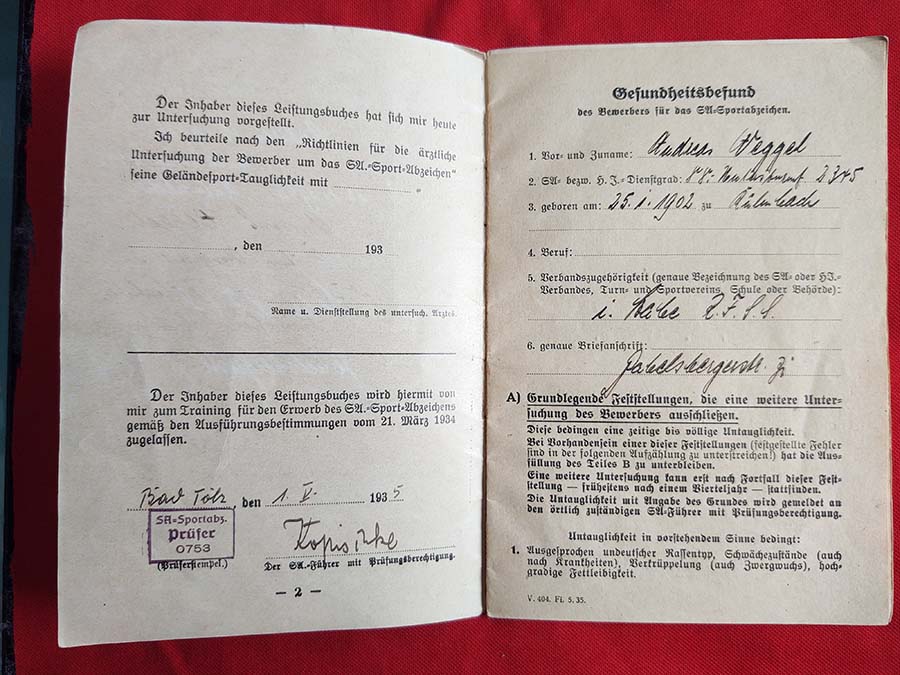 Der Inhaber dieses Leistungsbuches hat sich mir heute
zur Untersuchung vorgestellt.
Ich beurteile nach den „Richtlinien für die ärztliche
Untersuchung der Bewerber um das SA.-Sport-Abzeichen"
seine Geländesport-Tauglichkeit mit
, den 193
Name u. Dienststellung des untersuch. Arztes.
Der Inhaber dieses Leistungsbuches wird hiermit von
mir zum Training für den Erwerb des SA.-Sport-Abzeichens
gemäß den Ausführungsbestimmungen vom 21. März 1934
zugelassen.
Bad Tölz, den 1. V. 1935
SA-Sportabz.
Prüfer
0753
(Prüferstempel.)
Der SA.-Führer mit Prüfungsberechtigung.
— 2 —
Gesundheitsbefund
des Bewerbers für das SA-Sportabzeichen.
1. Vor- und Zuname: Andreas Weggel
2. SA- bezw. H. J.-Dienstgrad: 2345
3. geboren am: 25. 1. 1902 zu Kulmbach
4. Beruf:
5. Verbandszugehörigkeit (genaue Bezeichnung des SA- oder HJ.-
Verbandes, Turn- und Sportvereins, Schule oder Behörde):
i. Stabe R.F.S.S.
6. genaue Briefanschrift:
Gabelsbergerstr.
A) Grundlegende Feststellungen, die eine weitere Unter-
suchung des Bewerbers ausschließen.
Diese bedingen eine zeitige bis völlige Untauglichkeit.
Bei Vorhandensein einer dieser Feststellungen (festgestellte Fehler
sind in der folgenden Aufzählung zu unterstreichen!) hat die Aus-
füllung des Teiles B zu unterbleiben.
Eine weitere Untersuchung kann erst nach Fortfall dieser Fest-
stellung — frühestens nach einem Vierteljahr — stattfinden.
Die Untauglichkeit mit Angabe des Grundes wird gemeldet an
den örtlich zuständigen SA-Führer mit Prüfungsberechtigung.
Untauglichkeit in vorstehendem Sinne bedingt:
1. Ausgesprochen undeutscher Rassentyp, Schwächezustände (auch
nach Krankheiten), Verkrüppelung (auch Zwergwuchs), hoch-
gradige Fettleibigkeit.
V. 404. Fi. 5. 35.